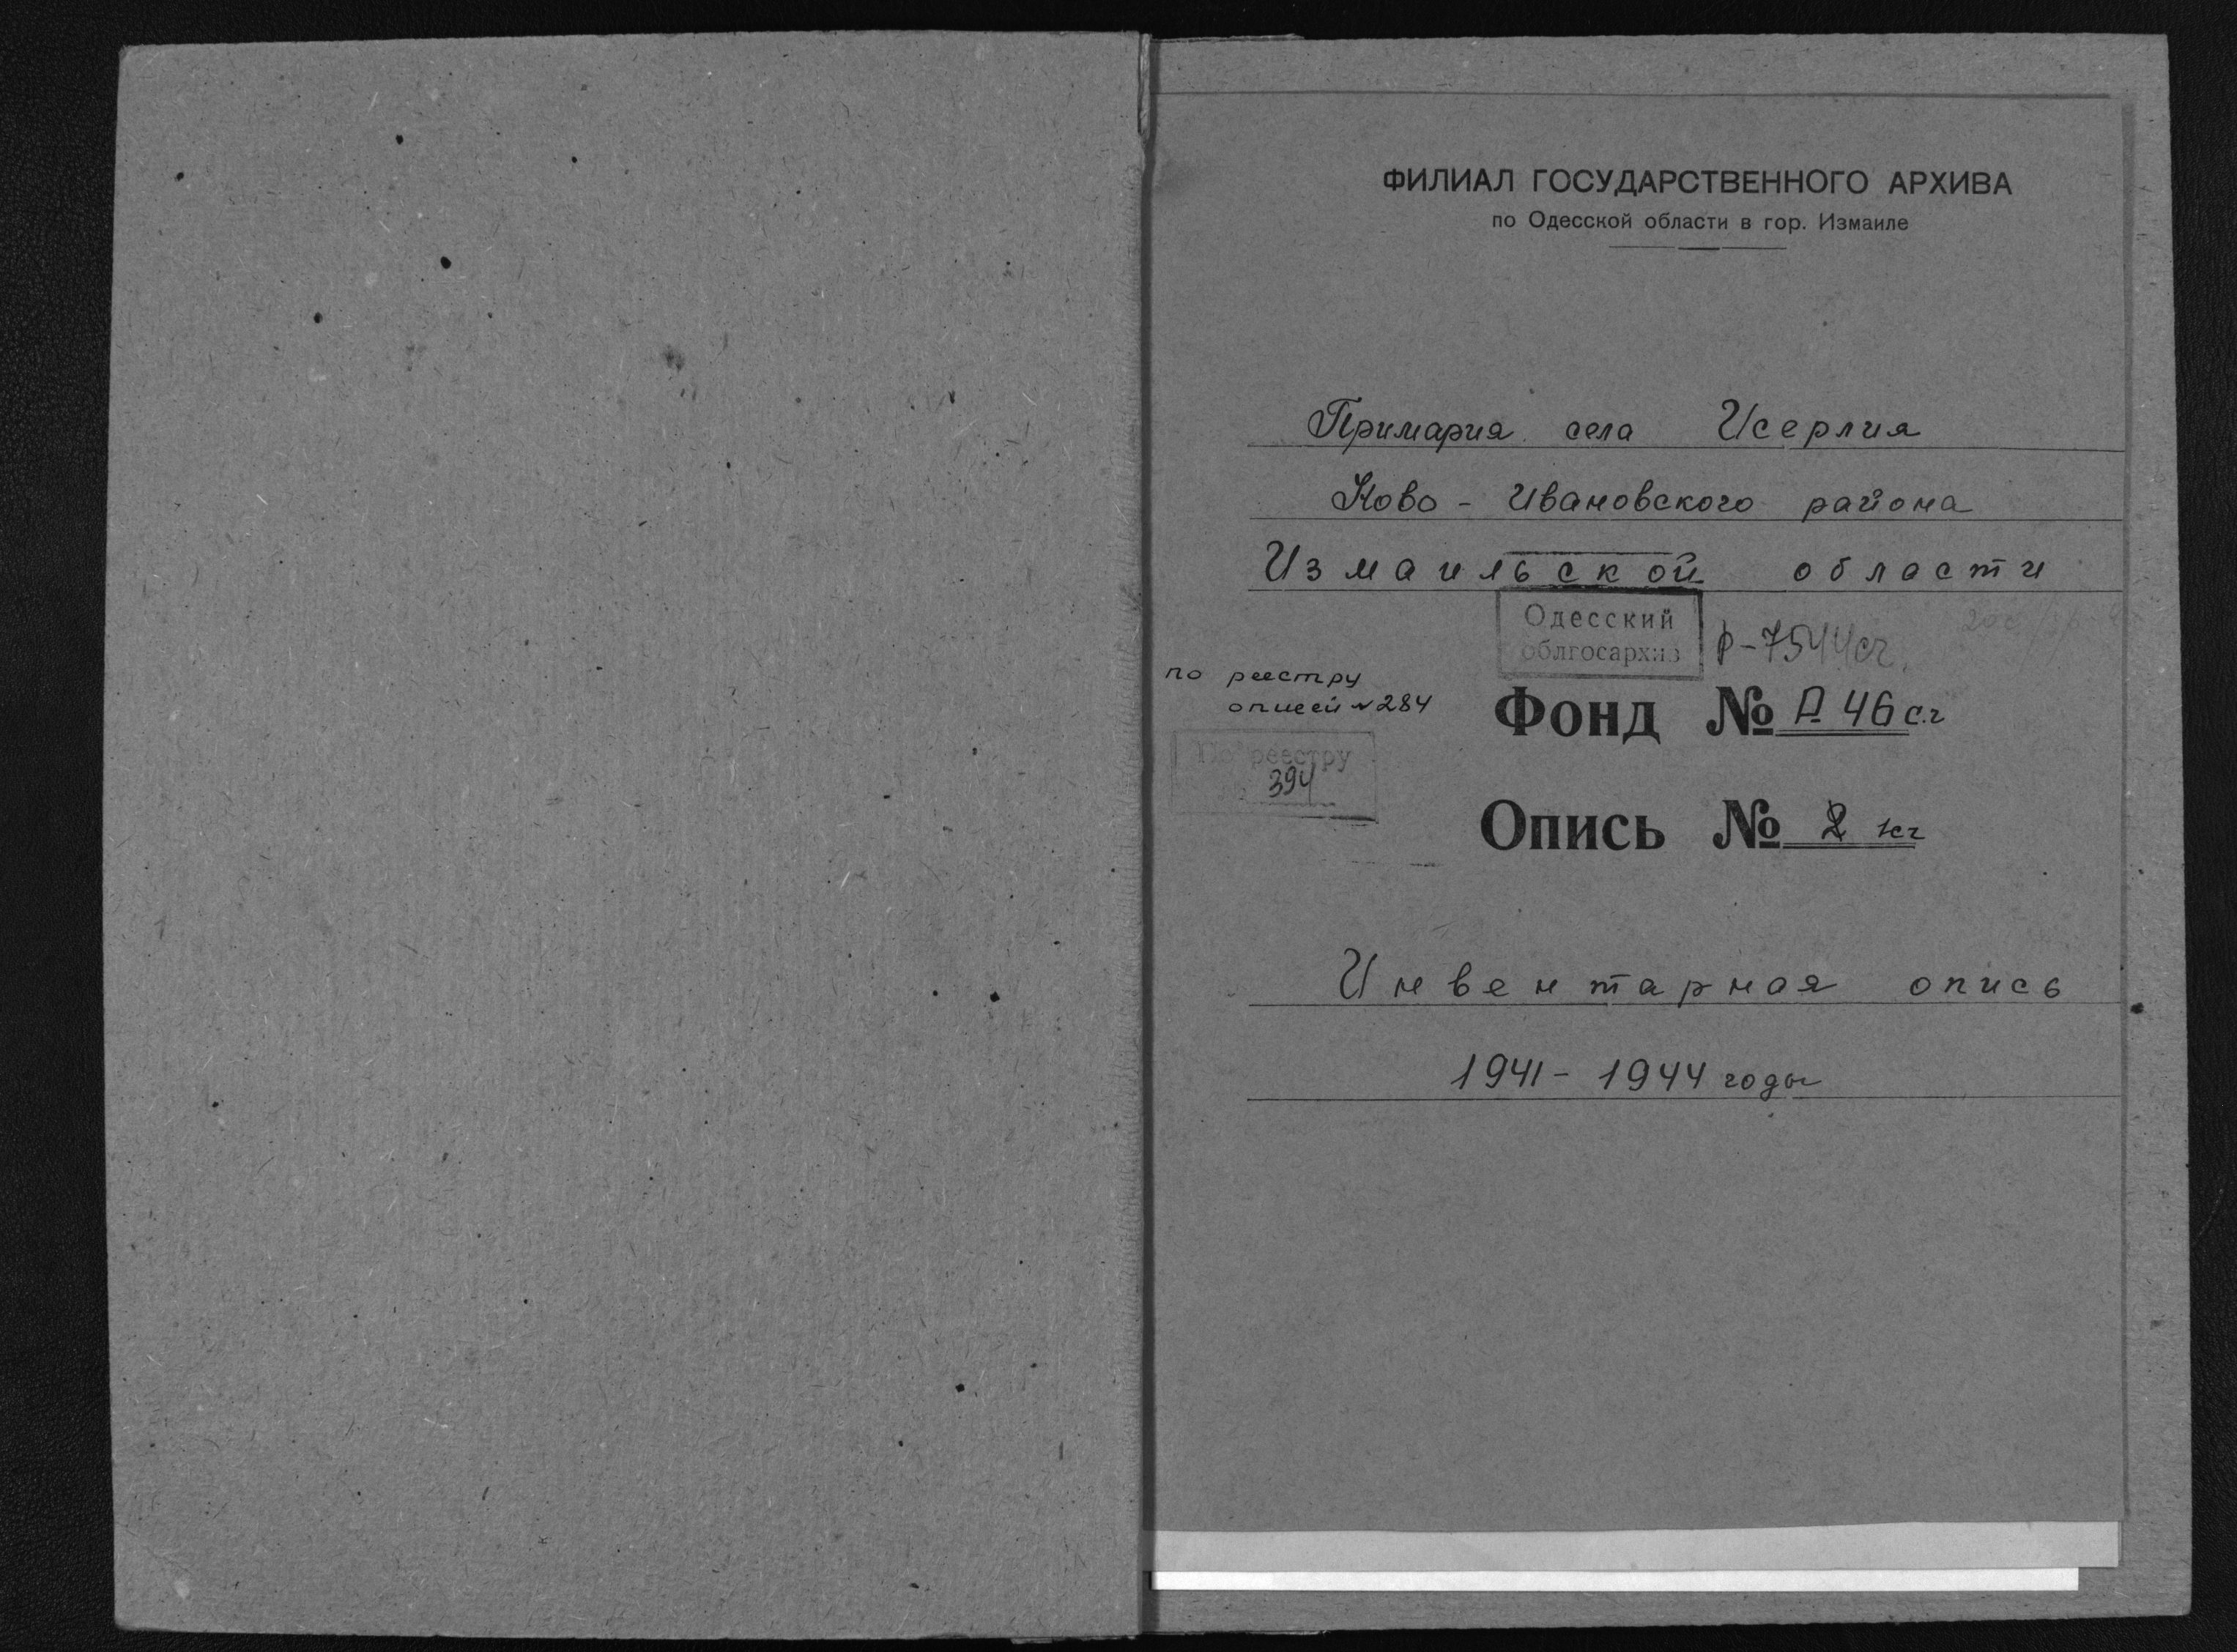 ФИЛИАЛ ГОСУДАРСТВЕННОГО АРХИВА
по Одесской области в гор. Измаиле
Примария села Исерлия
Ново - Ивановского района
Измаильской области
Одесский
облгосархив
Р-7544сг.
по реестру
описей №284
Фонд №
По реестру
394
Опись № 2
Инвентарная опись
1941 - 1944 годы